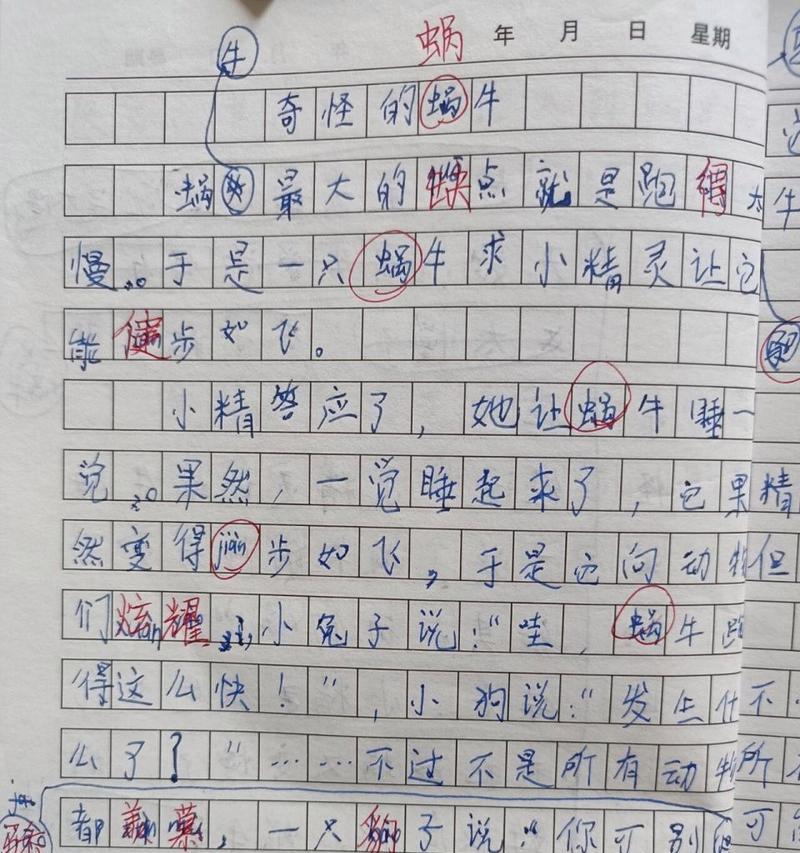 牛
蜗 年 月 日 星期
奇怪的蜗牛
蜗最大的缺点就是跑得太
慢。于是一只蜗牛求小精灵让它
能健步如飞。
小精答应了，她让蜗牛睡一
觉。果然，一觉睡起来了，它果
然变得jiàn步如飞，于是它向动物
们炫耀，小兔子说：“哇，蜗牛跑
得这么快！”，小狗说：“发生什
么了？”……不过不是所有动物
都羡慕，一只狮子说：“你可别
牛
精
但
不
所
可